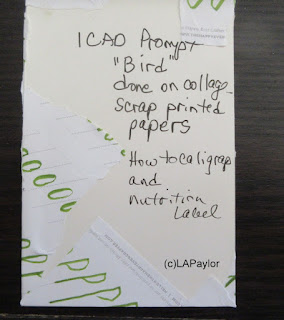 ICAD Prompt
"Bird"
done on collage
scrap printed
papers
How to caligrap
and
nutrition
Label
(c)LAPaylor